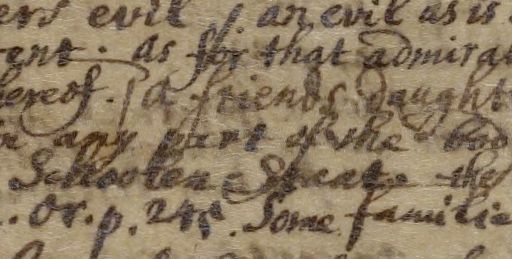 ers evil / an evil as is
rent. as for that admirat
hereof. [a friends daught
any part of the bod
Schoolen Sweat the
. Or. p. 245. Some familie